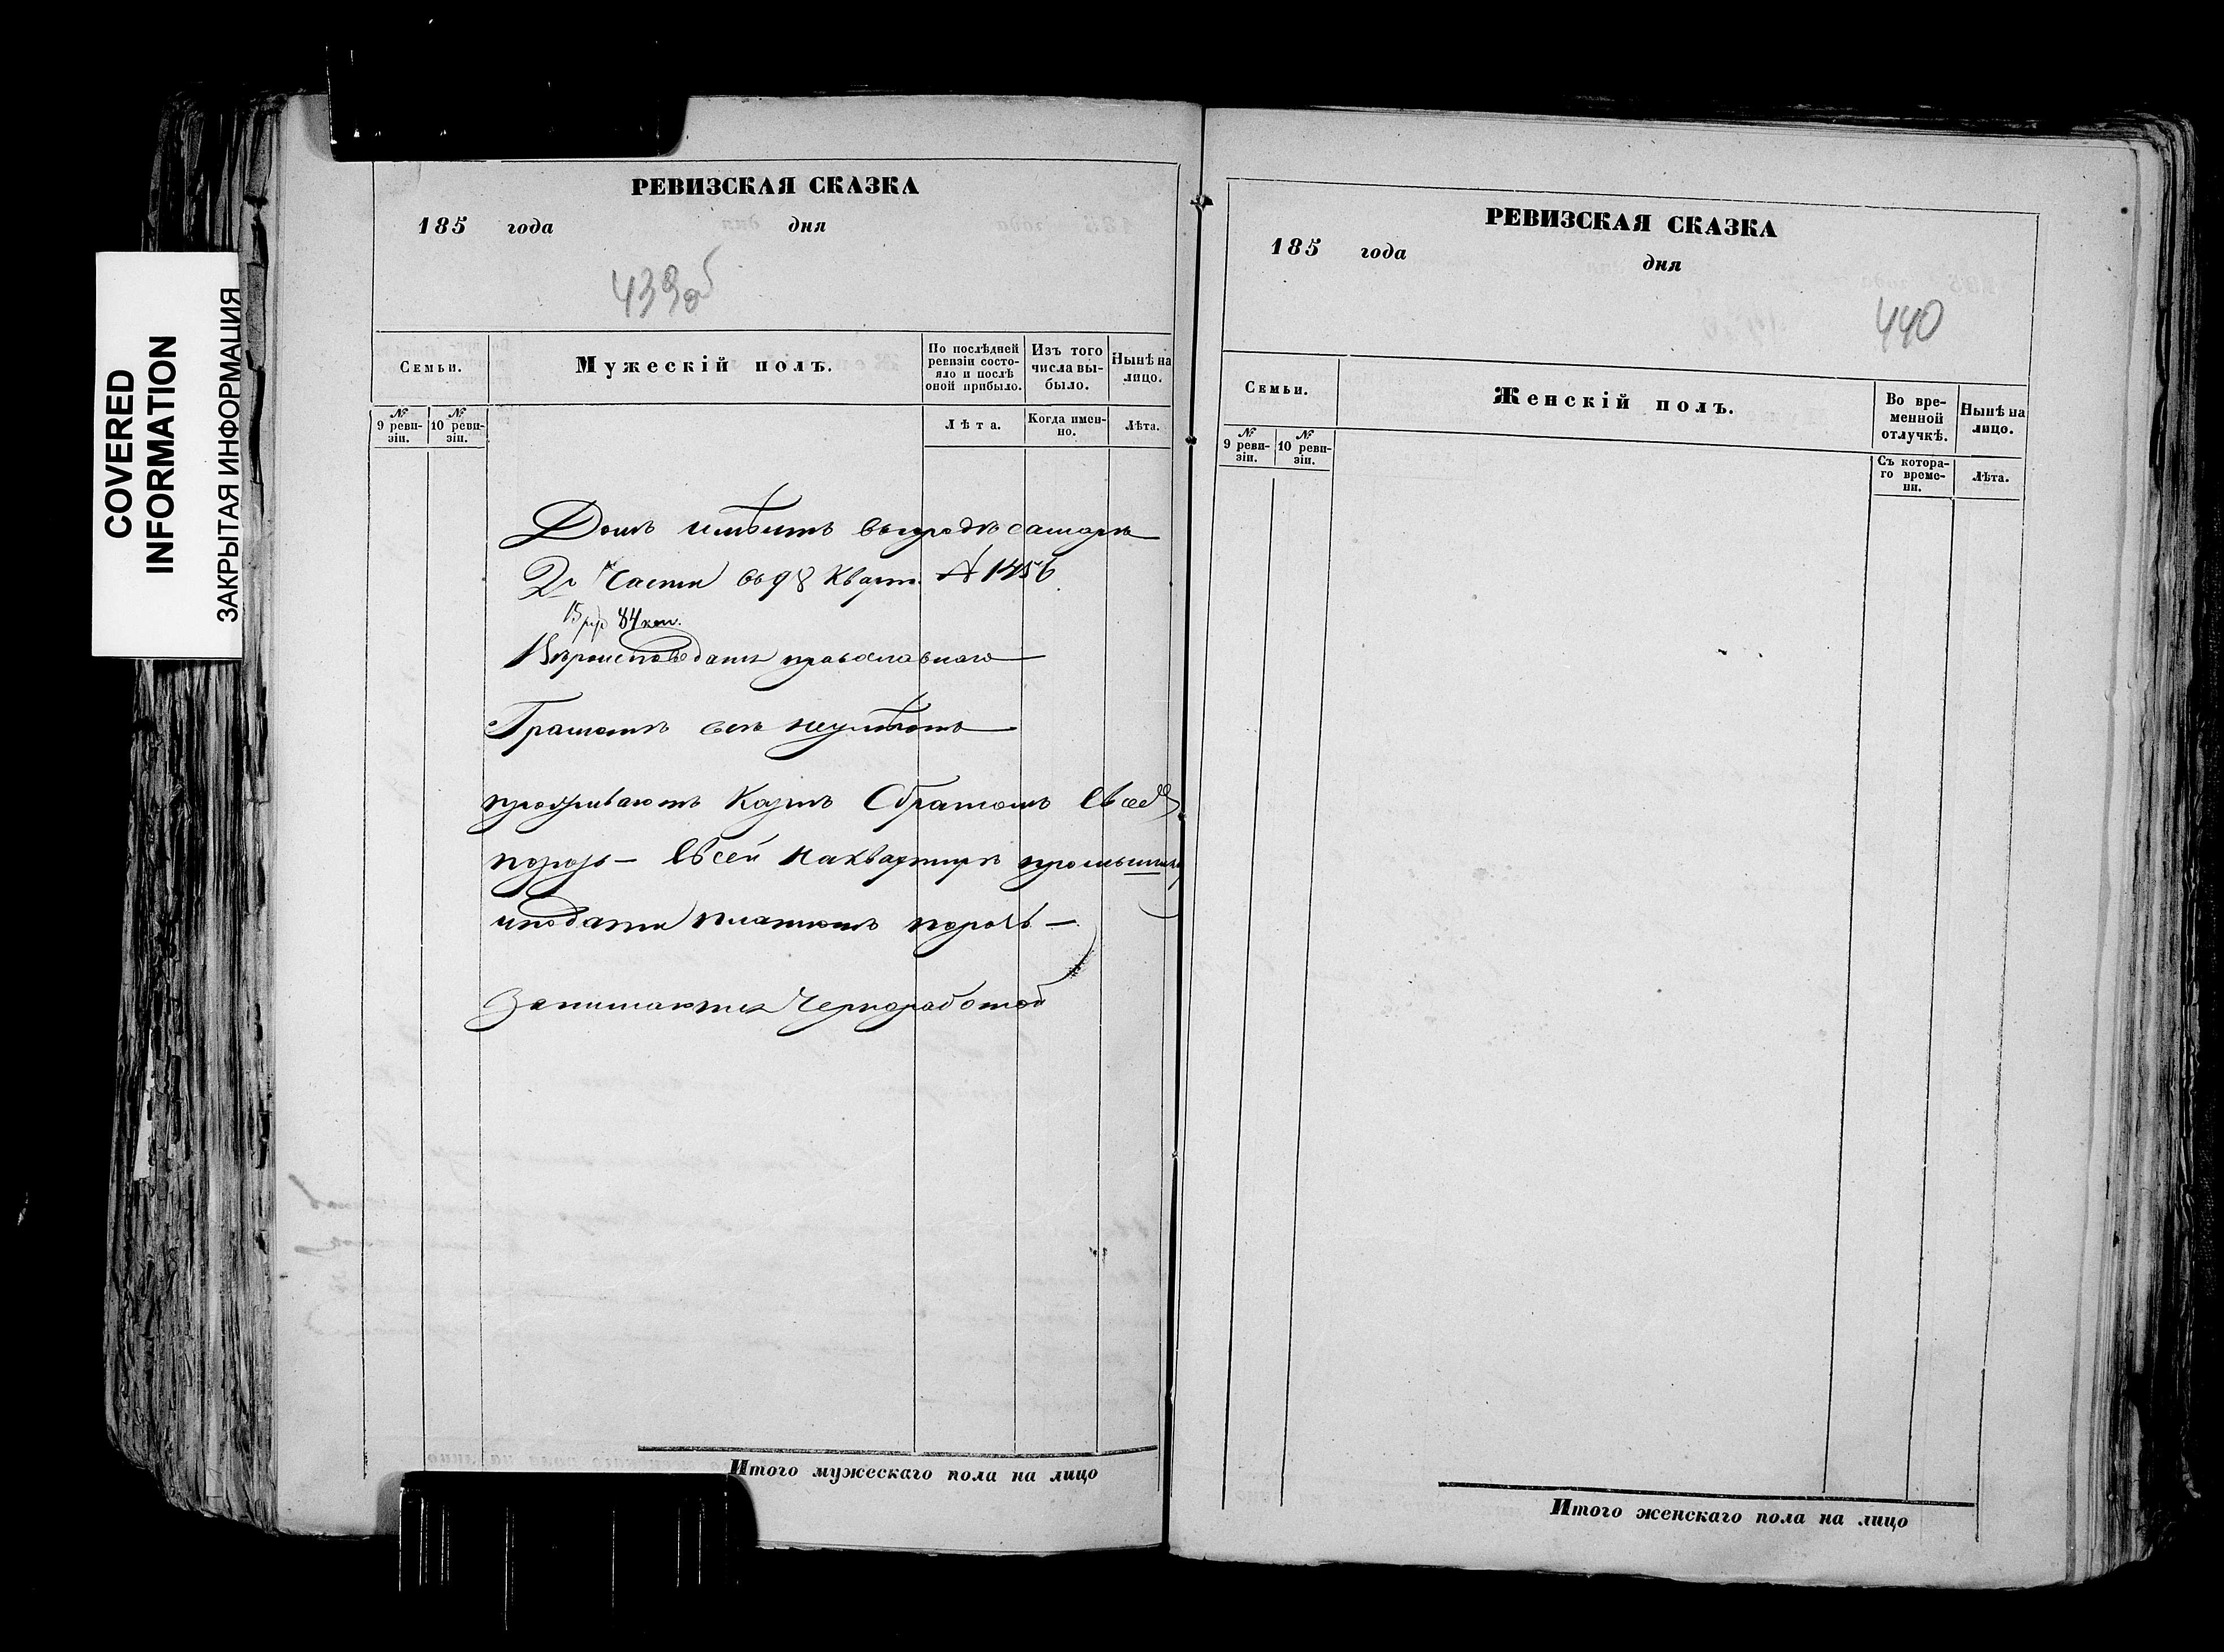 COVERED
INFORMATION
ЗАКРЫТАЯ ИНФОРМАЦИЯ
РЕВИЗСКАЯ СКАЗКА
185 года дня
439об
Семьи. Мужескій полъ. По послѣдней ревизіи состояло и послѣ оной прибыло. Изъ того числа выбыло. Нынѣ на лицо.
№ 9 ревизіи. № 10 ревизіи. Лѣта. Когда именно. Лѣта.
Домъ имѣетъ въ городѣ самарѣ
2й части въ 98 Кварт. № 1456
15 84 коп.
Вѣроисповеданія православнаго
Грамотѣ всѣ неумѣютъ
проживаютъ Братомъ
наквартирѣ
иподати платютъ
Занимаются Черноработой
Итого мужескаго пола на лицо
РЕВИЗСКАЯ СКАЗКА
185 года дня
440
Семьи. Женскій полъ. Во временной отлучкѣ. Нынѣ на лицо.
№ 9 ревизіи. № 10 ревизіи. Съ котораго времени. Лѣта.
Итого женскаго пола на лицо